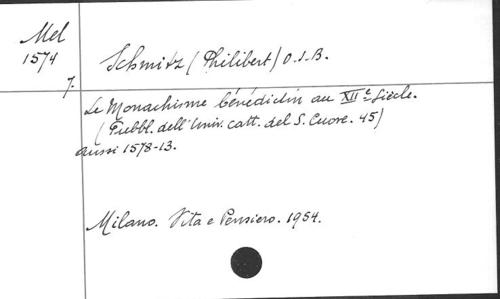 Mel
1574
7.
Schmitz (Philibert) O.S.B.
Le Monachisme bénédictin au XIIe Siècle.
(Pubbl. dell'Univ. catt. del S. Cuore. 45)
aussi 1578-13.
Milano. Vita e Pensiero. 1954.